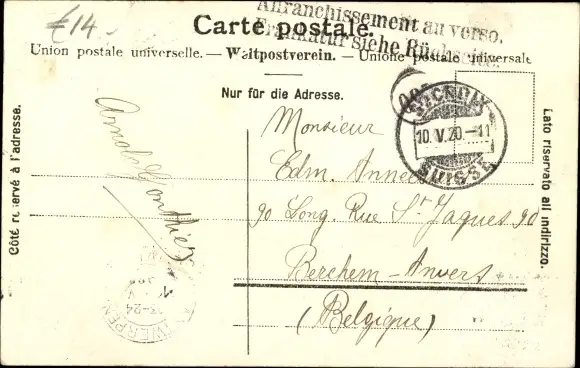 £14.
Affranchissement au verso.
Frankatur siehe Rückseite.
Carte postale.
Union postale universelle. — Weltpostverein. — Unione postale universale
Nur für die Adresse.
Côté réservé à l'adresse.
Lato riservato all'indirizzo.
10. V. 20. — 11
SUISSE
Monsieur
Edm. Anneet
90 Long. Rue St Jaques 90
Berchem - Anvers
(Belgique)
Arnold Gonthier
ANTWERPEN